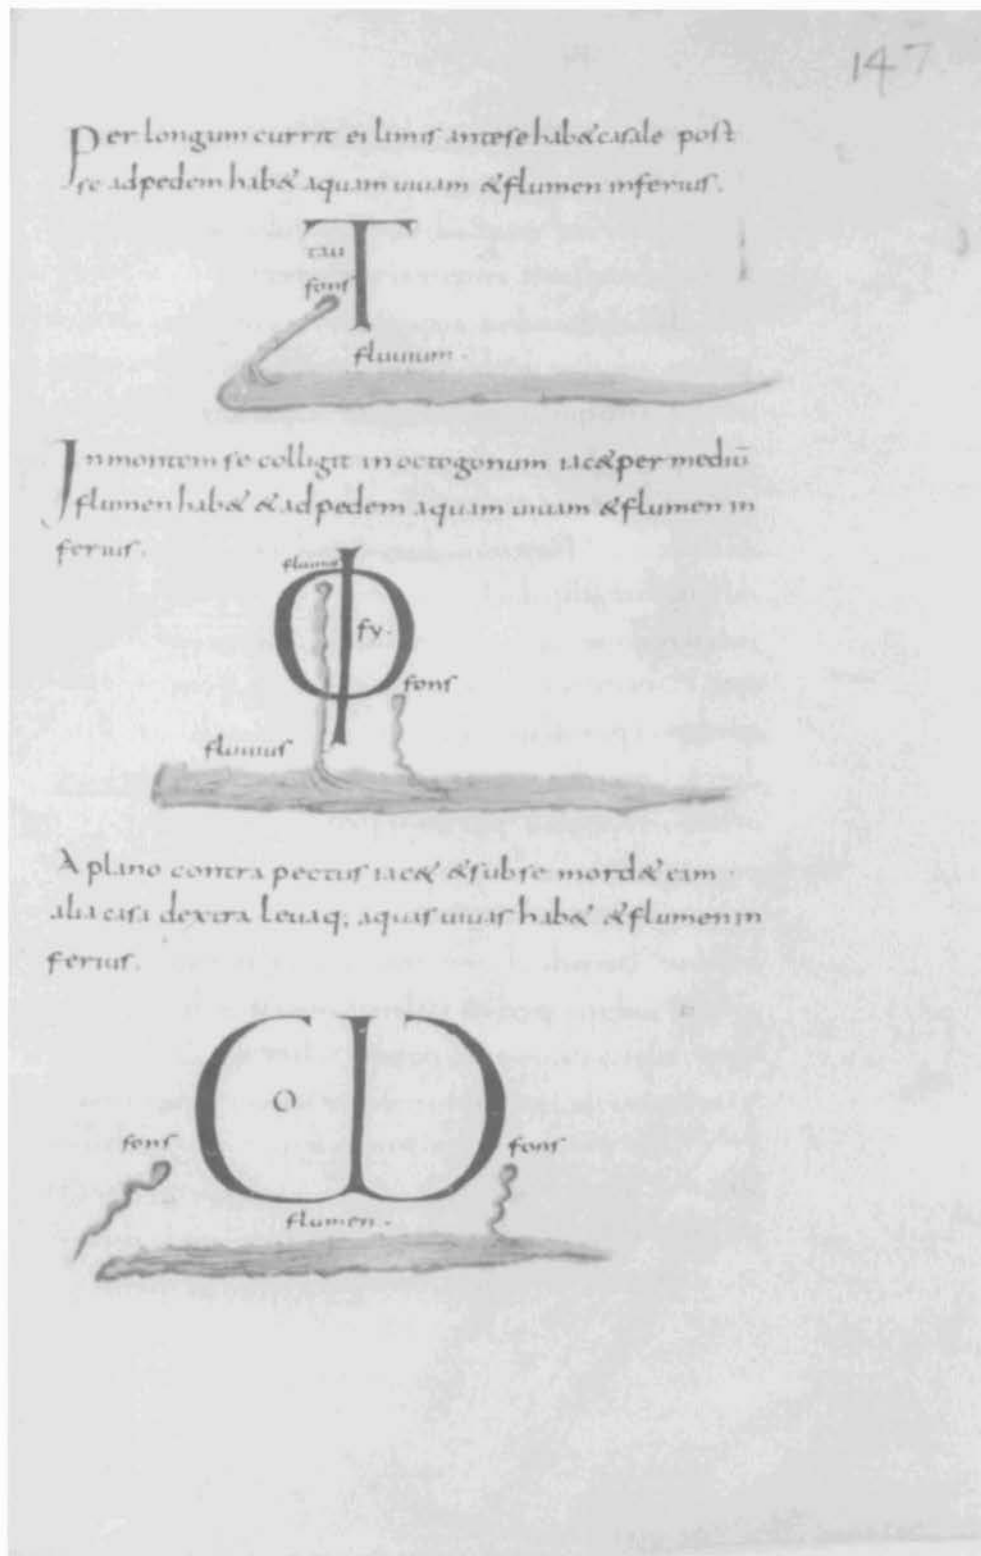 147
Per longum currit ei limis antese hab& casale post
se adpedem hab& aquam uiuam &flumen inferius.
T
tau
fons
fluuium.
Inmontem se colligit inoctogonum iac& per mediū
flumen hab& & adpedem aquam uiuam &flumen in
ferius.
Φ
fy.
fons
fluuius
A plano contra pectus iac& &subse mord& eam
alia casa dextra leuaq; aquas uiuas hab& &flumen in
ferius.
Ꞷ
O
fons
fons
flumen.